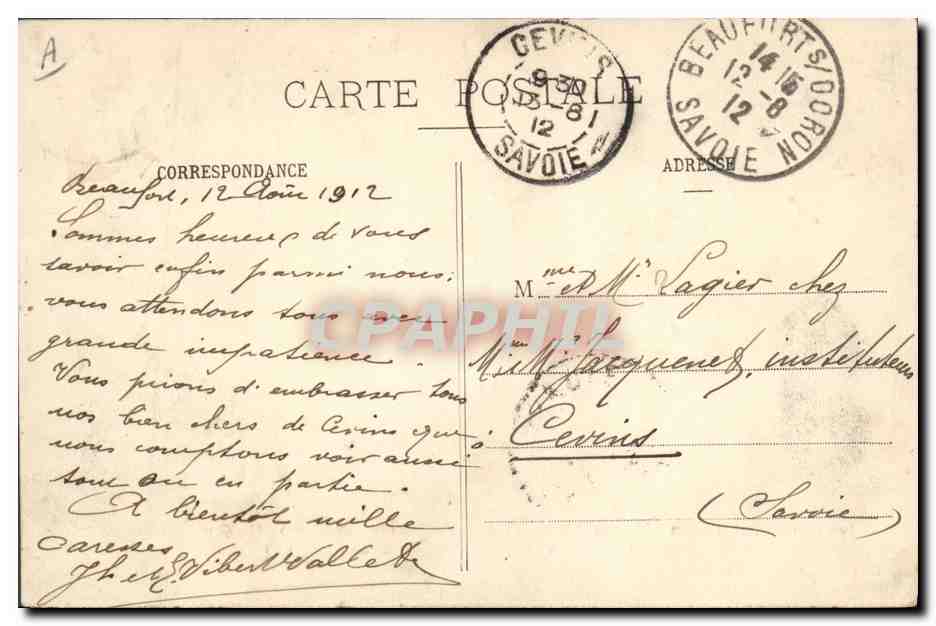 A
CARTE POSTALE
CEVINS
9 30
13 -8
12
SAVOIE
BEAUFORT S/DORON
14 15
12 -8
12
SAVOIE
CORRESPONDANCE
Beaufort, 12 Août 1912
Sommes heureux de vous
savoir enfin parmi nous;
vous attendons tous avec
grande impatience
Vous prions d'embrasser tous
nos bien chers de Cevins que
nous comptons voir aussi
tout ou en partie.
A bientôt mille
caresses
Jh et E. Vibert Vallet
ADRESSE
Mme et Mr Lagier chez
Mme Mr Jacquenet, instituteurs
à Cevins
(Savoie)
CPAPHIL